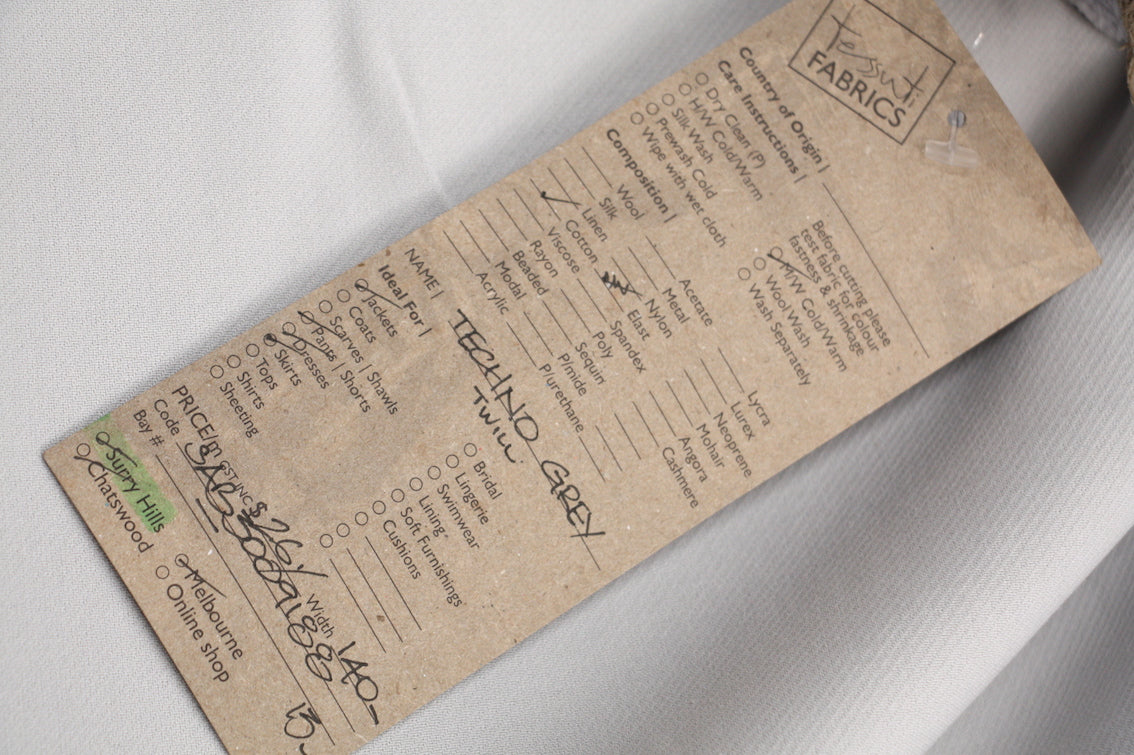 Tessuti
FABRICS
Country of Origin |
Care Instructions |
Dry Clean (P)
H/W Cold/Warm
Silk Wash
Prewash Cold
Wipe with wet cloth
Before cutting please
test fabric for colour
fastness & shrinkage
M/W Cold/Warm
Wool Wash
Wash Separately
Composition |
Wool
Silk
Linen
Cotton
Viscose
Rayon
Beaded
Modal
Acrylic
Acetate
Metal
Nylon
Elast
Spandex
Poly
Sequin
P/mide
P/urethane
Lycra
Lurex
Neoprene
Mohair
Angora
Cashmere
NAME | TECHNO GREY
TWILL
Ideal For |
Jackets
Coats
Scarves | Shawls
Pants | Shorts
Dresses
Skirts
Tops
Shirts
Sheeting
Bridal
Lingerie
Swimwear
Lining
Soft Furnishings
Cushions
PRICE/m GST INC $26/ Width 140-
Code
Bay # 13-
Surry Hills
Chatswood
Melbourne
Online shop